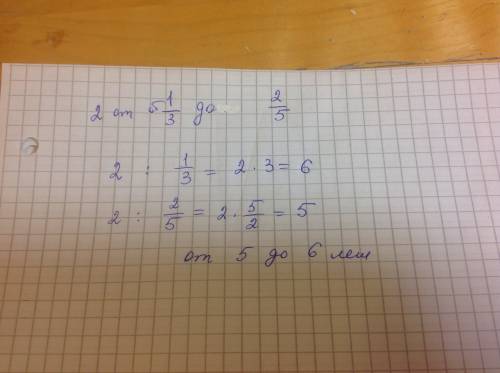 2 от 1/3 до 2/5
2 : 1/3 = 2 · 3 = 6
2 : 2/5 = 2 · 5/2 = 5
от 5 до 6 лет